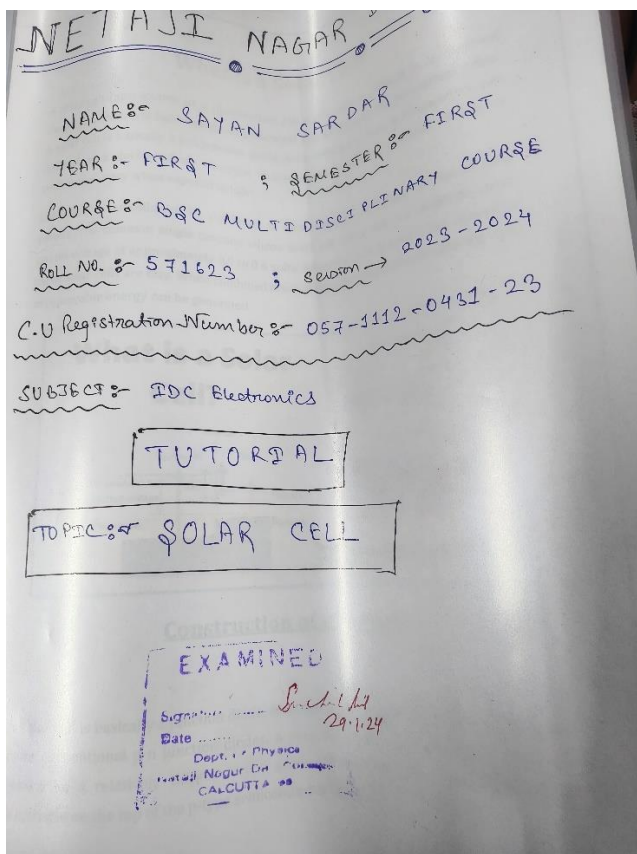 NETAJI NAGAR
NAME:- SAYAN SARDAR
YEAR:- FIRST ; SEMESTER:- FIRST
COURSE:- BSC MULTIDISCIPLINARY COURSE
ROLL NO. :- 571623 ; Session → 2023-2024
C.U Registration Number:- 057-1112-0431-23
SUBJECT:- IDC Electronics
TUTORIAL
TOPIC:- SOLAR CELL
Construction
EXAMINED
Signature ........
29.1.24
Date ........
Dept. of Physics
Netaji Nagar Day
CALCUTTA